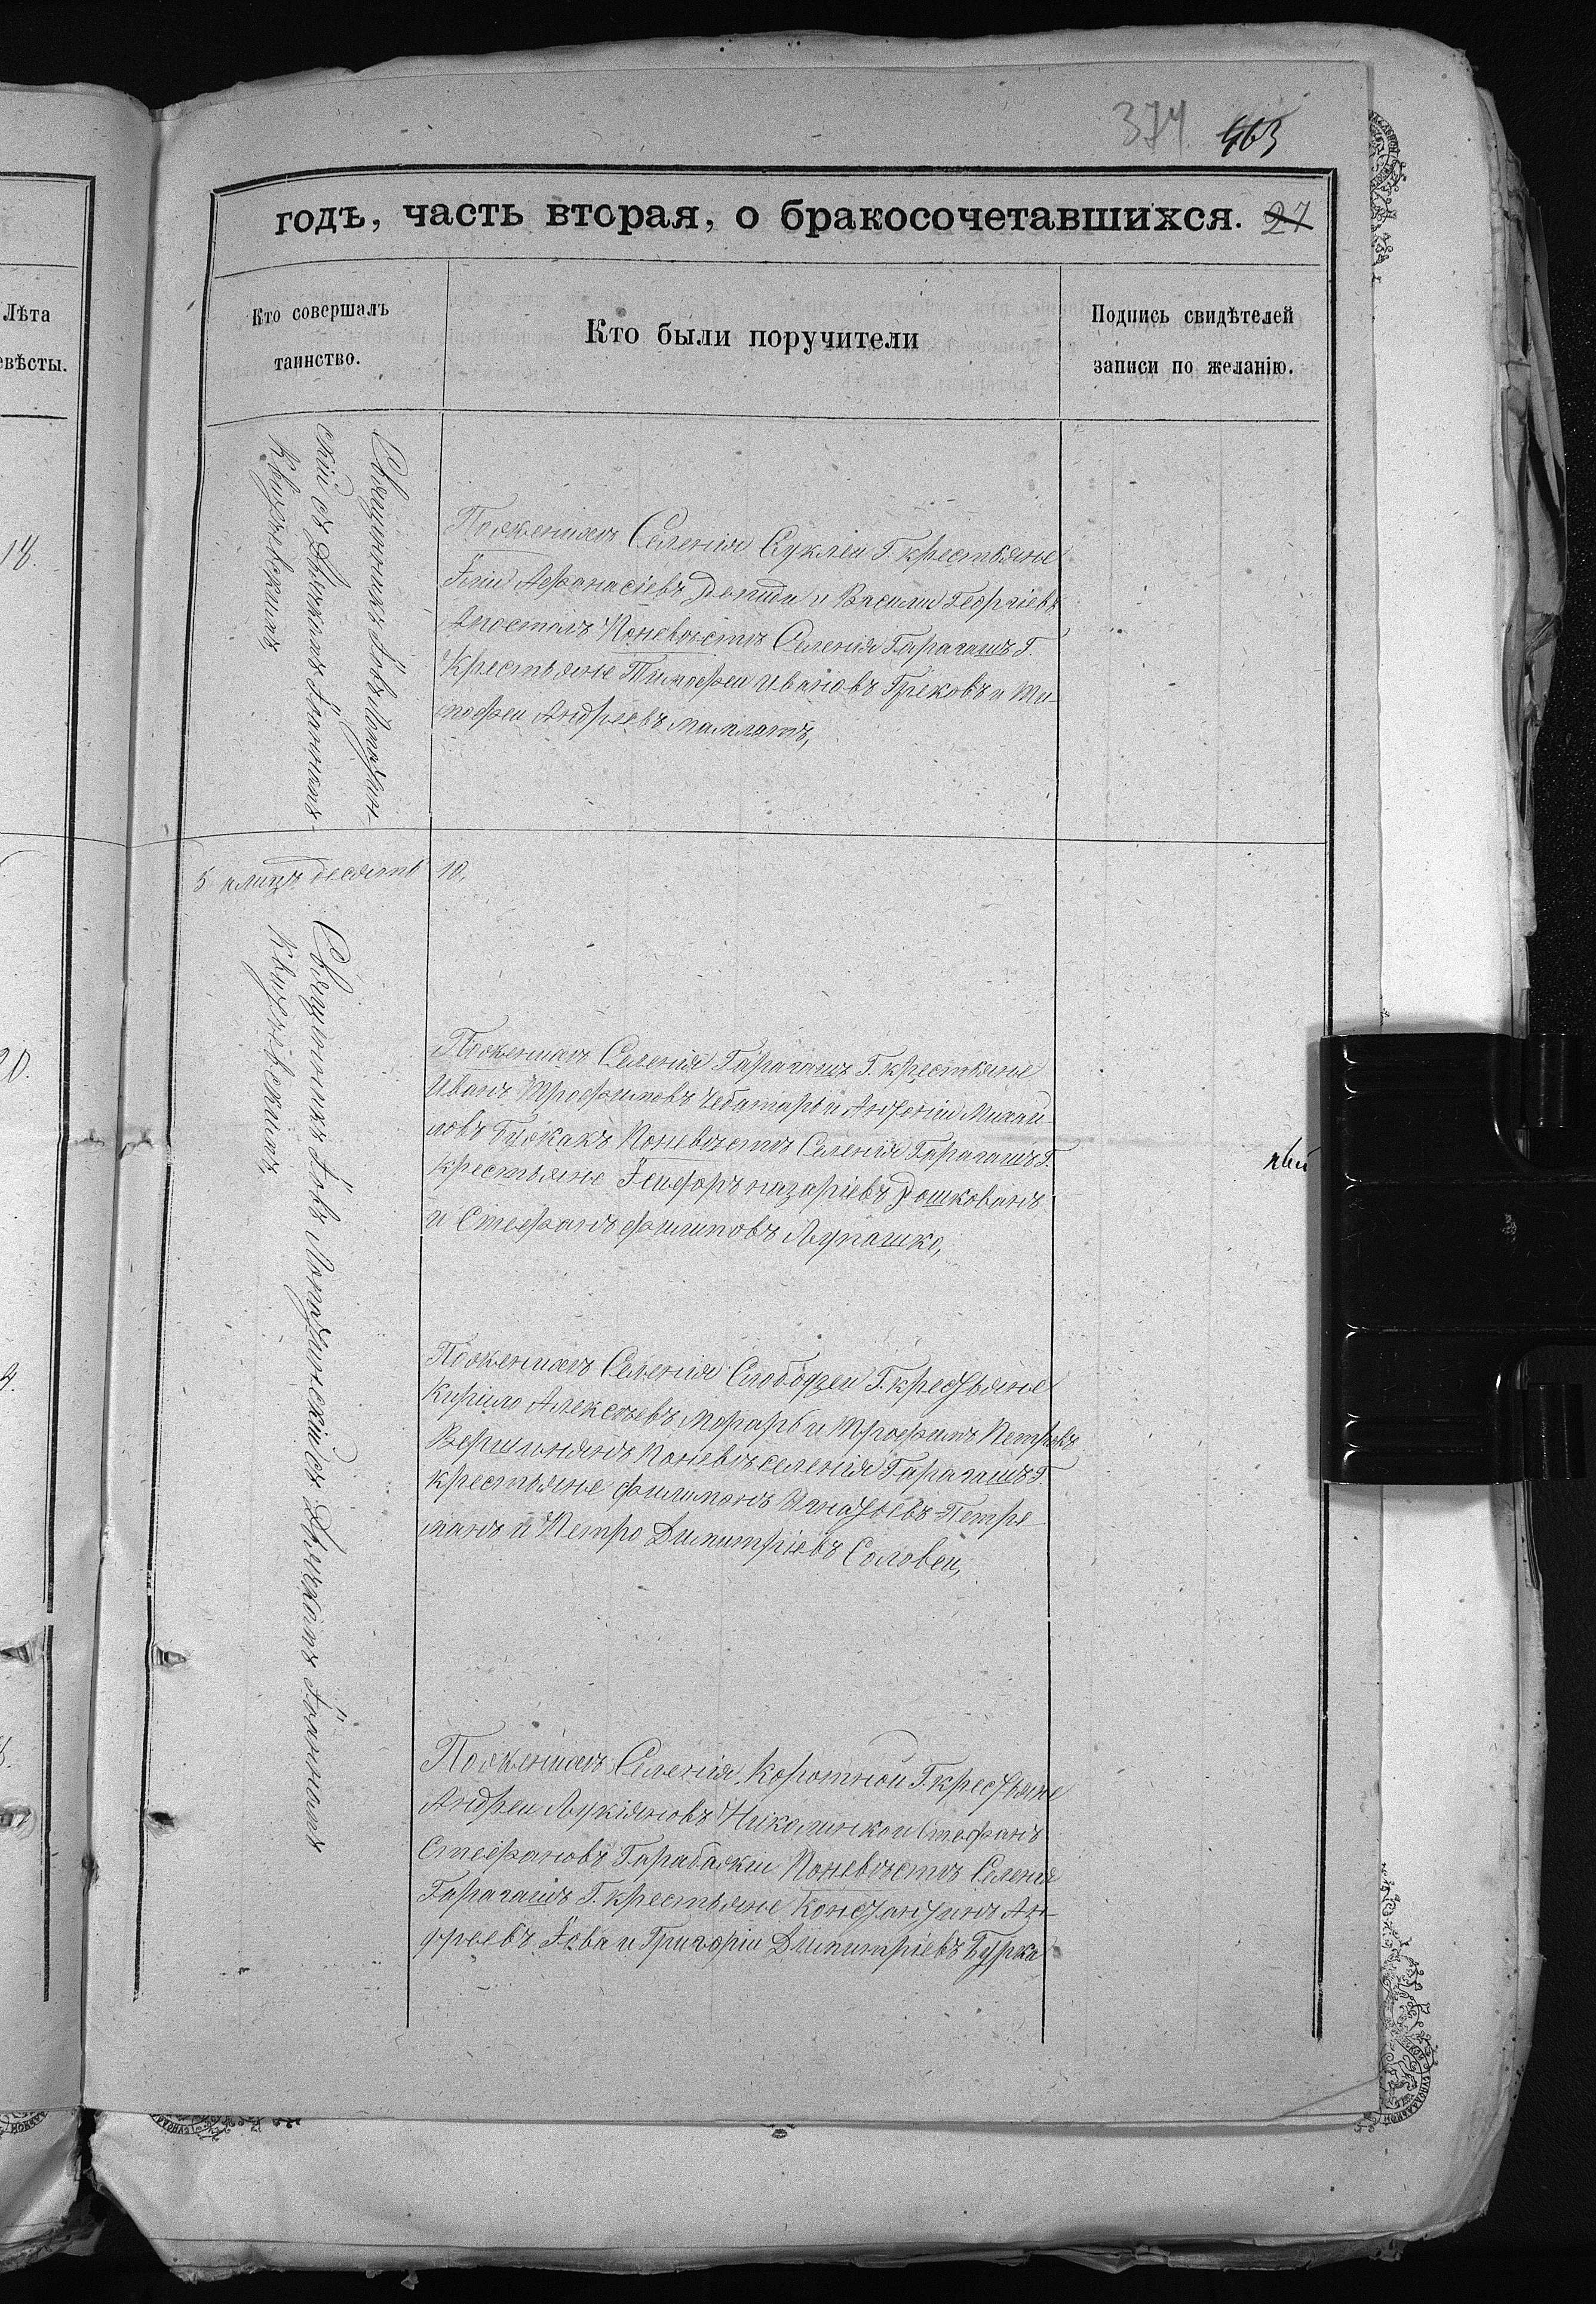 374 463
годъ, часть вторая, о бракосочетавшихся. 27
Лѣта
евѣсты.
Кто совершалъ
таинство.
Кто были поручители
Подпись свидѣтелей
записи по желанію.
18.
Священникъ Іовъ Лопадин-
скій съ Дьячкомъ Іоанномъ
Квизѣевскимъ
Поженихѣ Селенія Суклеи Г. крестьяне
Іліи Афанасіевъ Допиди и Василій Георгіевъ
Апостолъ Поневѣстѣ Селенія Гарагашъ Г.
Крестьяне Тимофеи Ивановъ Грековъ и Ти-
мофеи Андреевъ мамлатъ,
5 и лицъ десять 10.
20.
Священникъ Іовъ Лопадинскій съ Дьячкомъ Іоанномъ
Квизѣевскимъ
Поженихѣ Селенія Гарагашъ Г. крестьяне
Иванъ Трофимовъ Чеботарь и Антоній Михаи
ловъ Биокакъ Поневѣстѣ Селенія Гарагашъ Г.
крестьяне Іеиѳоръ назаріевъ Дошкованъ
и Стефанъ филиповъ Лупашко,
Поженихѣ Селенія Слободзеи Г. крестьяне
Кирило Алексѣевъ Морарь и Трофимъ Петровъ
Вершинянъ Поневѣ селенія Гарагашъ Г.
крестьяне филимонъ Игнатьевъ Петре
манъ и Петро Димитріевъ Соловеи,
Поженихѣ Селенія Коротнои Г крестьяне
Андреи Лукіяновъ Николинко и Стефанъ
Стефановъ Гарабажіи Поневѣстѣ Селенія
Гарагашъ Г. крестьяне Константинъ Ан-
дреевъ Іова и Григоріи Димитріевъ Бурка